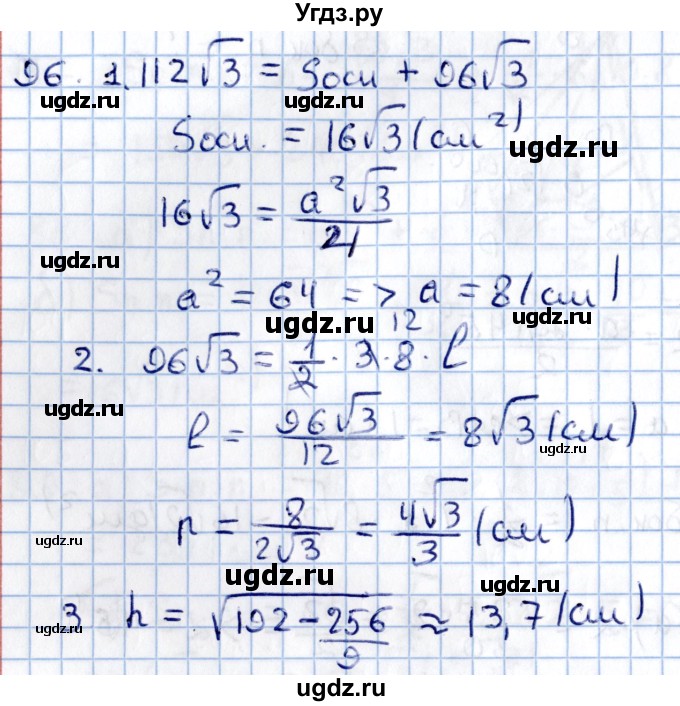 Угдз.ру
96. 1. 112√3 = Sосн + 96√3
ugdz.ru ugdz.ru
Sосн. = 16√3 (см²)
ugdz.ru
16√3 = a²√3/4
ugdz.ru
a² = 64 => a = 8 (см)
ugdz.ru ugdz.ru
12
2. 96√3 = 1/2 · 3 · 8 · l
ugdz.ru
l = 96√3/12 = 8√3 (см)
ugdz.ru
r = 8/2√3 = 4√3/3 (см)
ugdz.ru
ugdz.ru ugdz.ru
3 h = √192 - 256/9 ≈ 13,7 (см)
ugdz.ru ugdz.ru
ugdz.ru